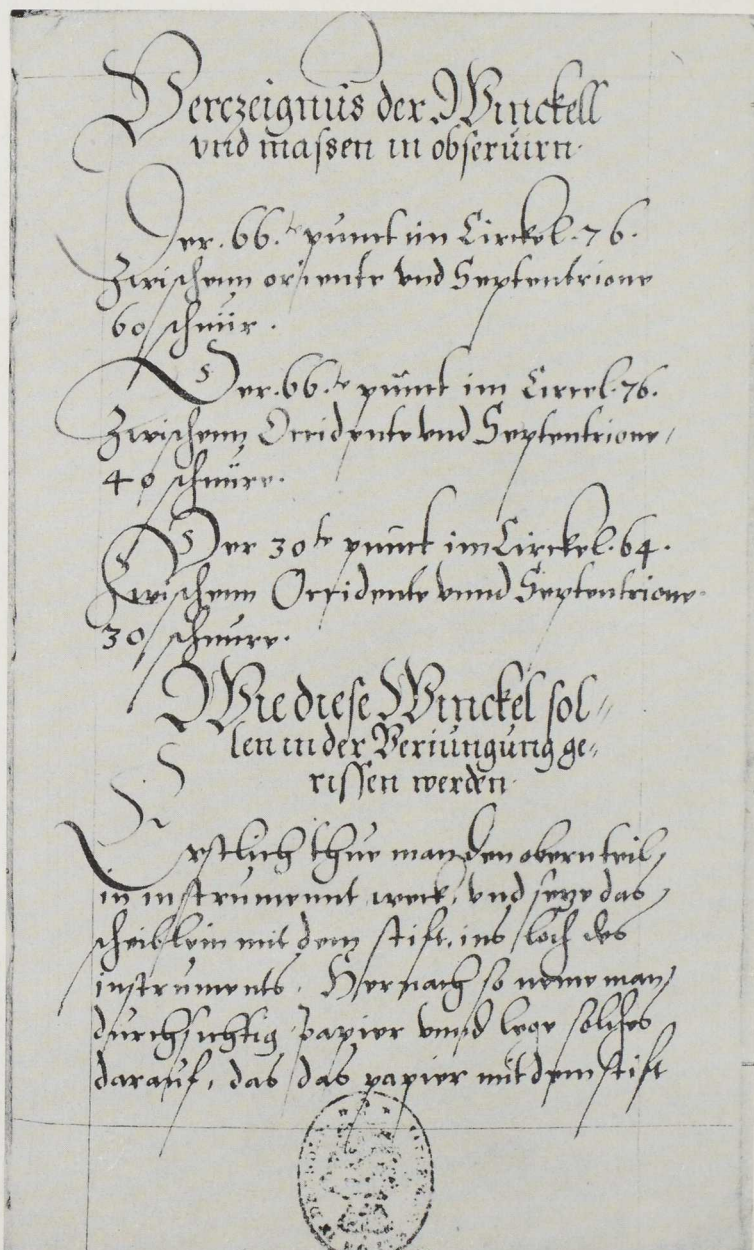 Verczeignus der Winckell
vnd massen in obseruirn.
Der .66.te punct im Circkel .76.
Zwischenn oriente vnd Septentrione
60 schnür .
Der .66.te punct im Circkel .76.
Zwischenn Occidente vnd Septentrione,
40 schnüre.
Der 30te punct im Circkel .64.
Zwischenn Occidente vnnd Septentrione.
30 schnüre.
Wie diese Winckel sol=
len in der Veriüngüng ge=
rissen werden.
Erstlich thue man den obern teil,
in instrumennt weck, vnd setze das
scheiblein mit dem stift, ins loch des
instruments. Hernach so neme man,
durchsichtig papier vnnd lege solches
darauf, das das papier mit dem stift